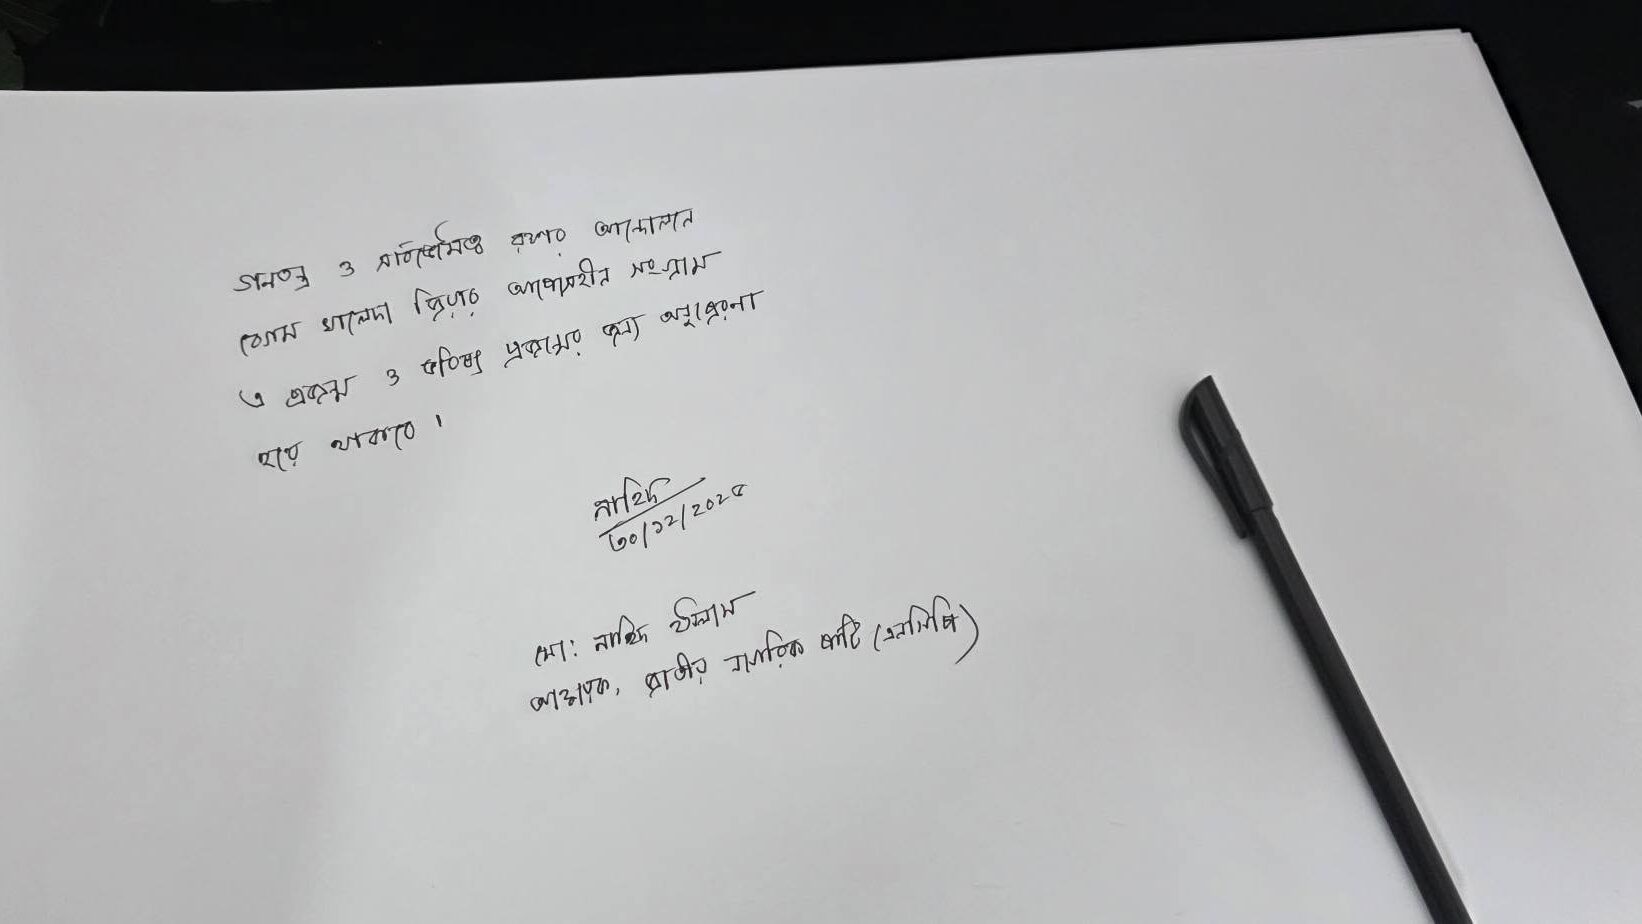 গনতন্ত্র ও সার্বভৌমত্ব রক্ষার আন্দোলনে
বেগম খালেদা জিয়ার আপোষহীন সংগ্রাম
এ প্রজন্ম ও ভবিষ্যৎ প্রজন্মের জন্য অনুপ্রেরনা
হয়ে থাকবে।
নাহিদ
৩০/১২/২০২৫
মো: নাহিদ ইসলাম
আহ্বায়ক, জাতীয় নাগরিক পার্টি (এনসিপি)